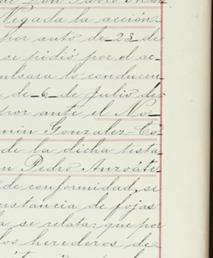 llegada la acción
por auto de 23 de
se pidió por el ac-
pulsara lo conducen
de 6 de Julio de
por ante el No-
min Gonzalez Co
de la dicha testa-
n Pedro Anzoáte
de conformidad, se
instancia de fojas
a se relata: que por
los herederos de